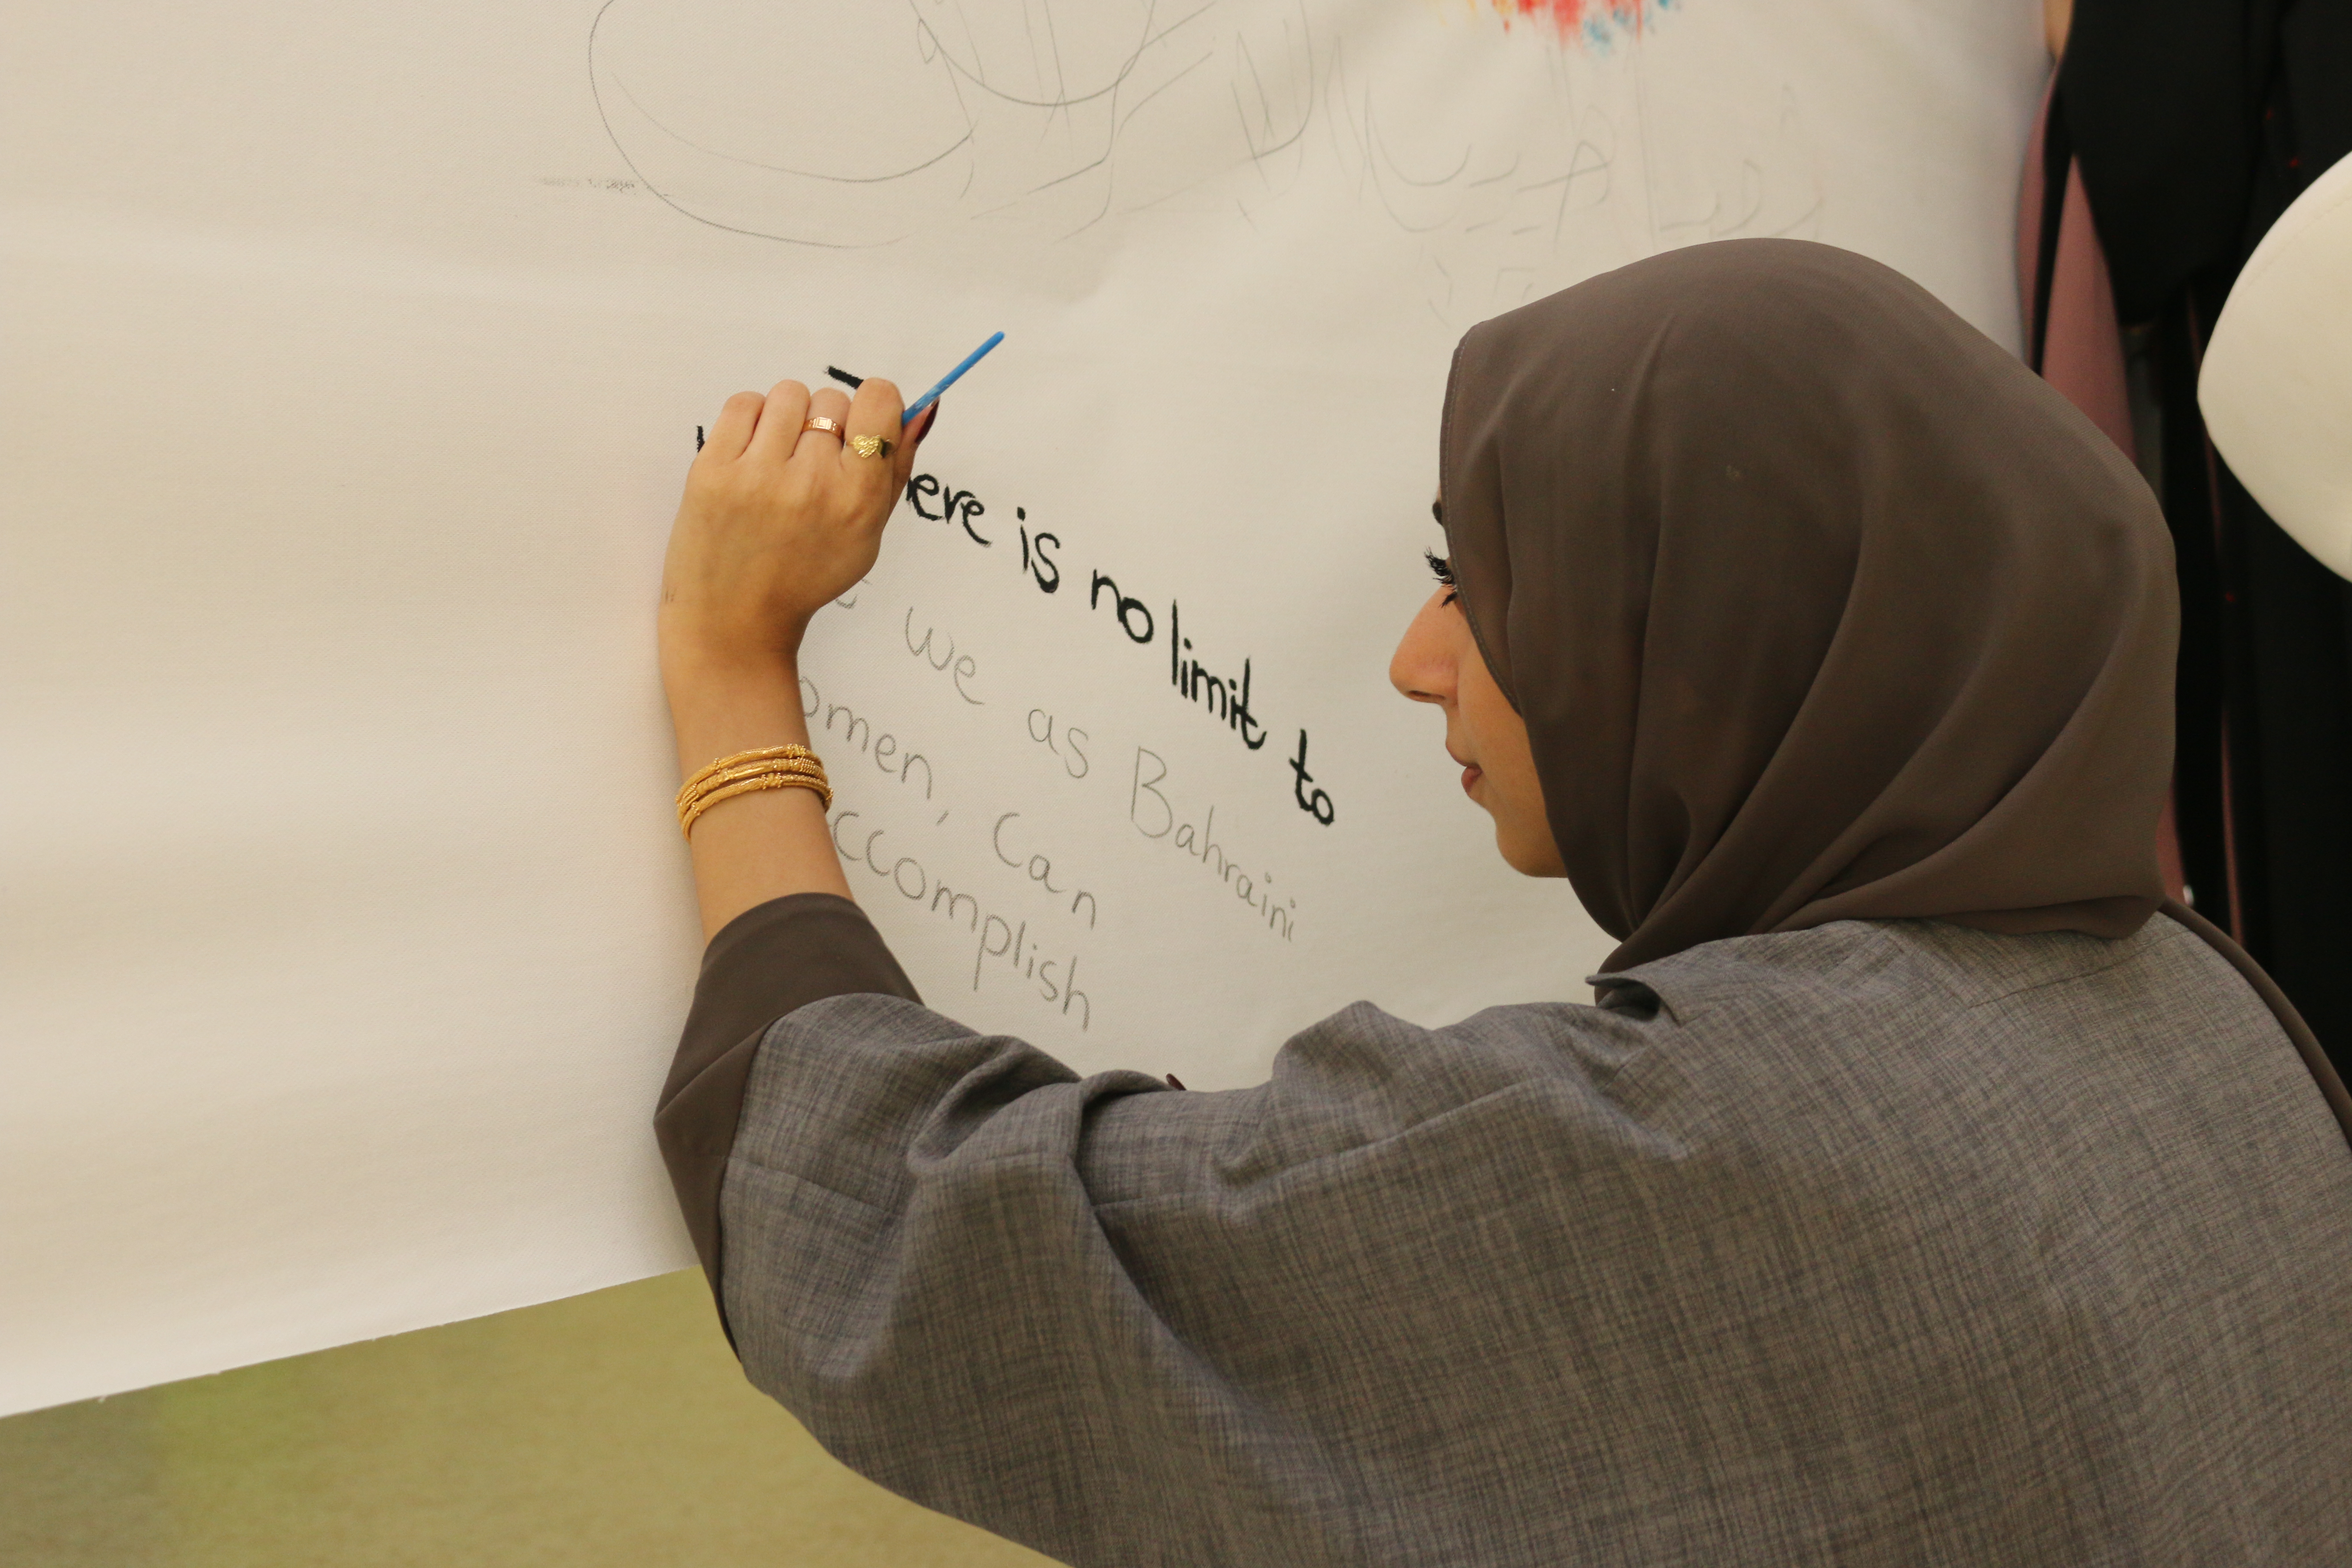 here is no limit to
we as Bahraini
omen, can
ccomplish